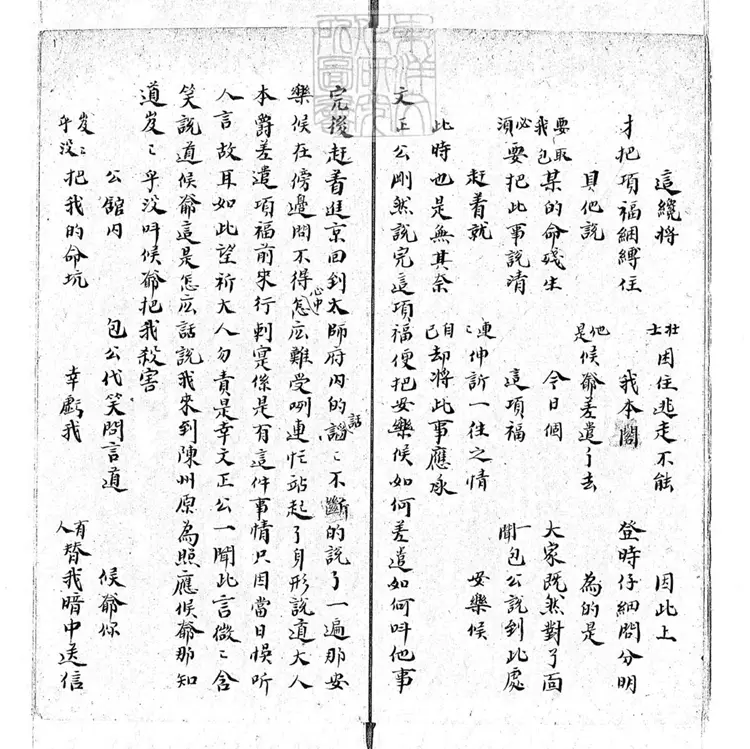 這纔將 壮士困住逃走不能 因此上
才把項福綑縛住 我本閣 登時仔細問分明
具他說 他是候爺差遣了去 為的是
要取我包某的命殘生 今日個 大家既然對了面
必須要把此事說清 這項福 一聞包公說到此處
赶着就 連〻伸訴一往之情 安樂候
此時也是無其奈 自己却將此事應承
文正公剛然說完這項福便把安樂候如何差遣如何呌他事
完後赶着進京回到太師府内的話〻不斷的說了一遍那安
樂候在傍邊問不得心中怎庅難受咧連忙站起了身形說道大人
本爵差遣項福前來行刺寔係是有這件事情只因當日悮听
人言故耳如此望祈大人勿責是幸文正公一聞此言微〻含
笑說道候爺這是怎庅話說我來到陳州原為照應候爺那知
道岌〻乎沒呌候爺把我殺害
公舘内 包公代笑問言道 候爺你
岌〻乎沒把我的命坑 幸虧我 有人替我暗中送信